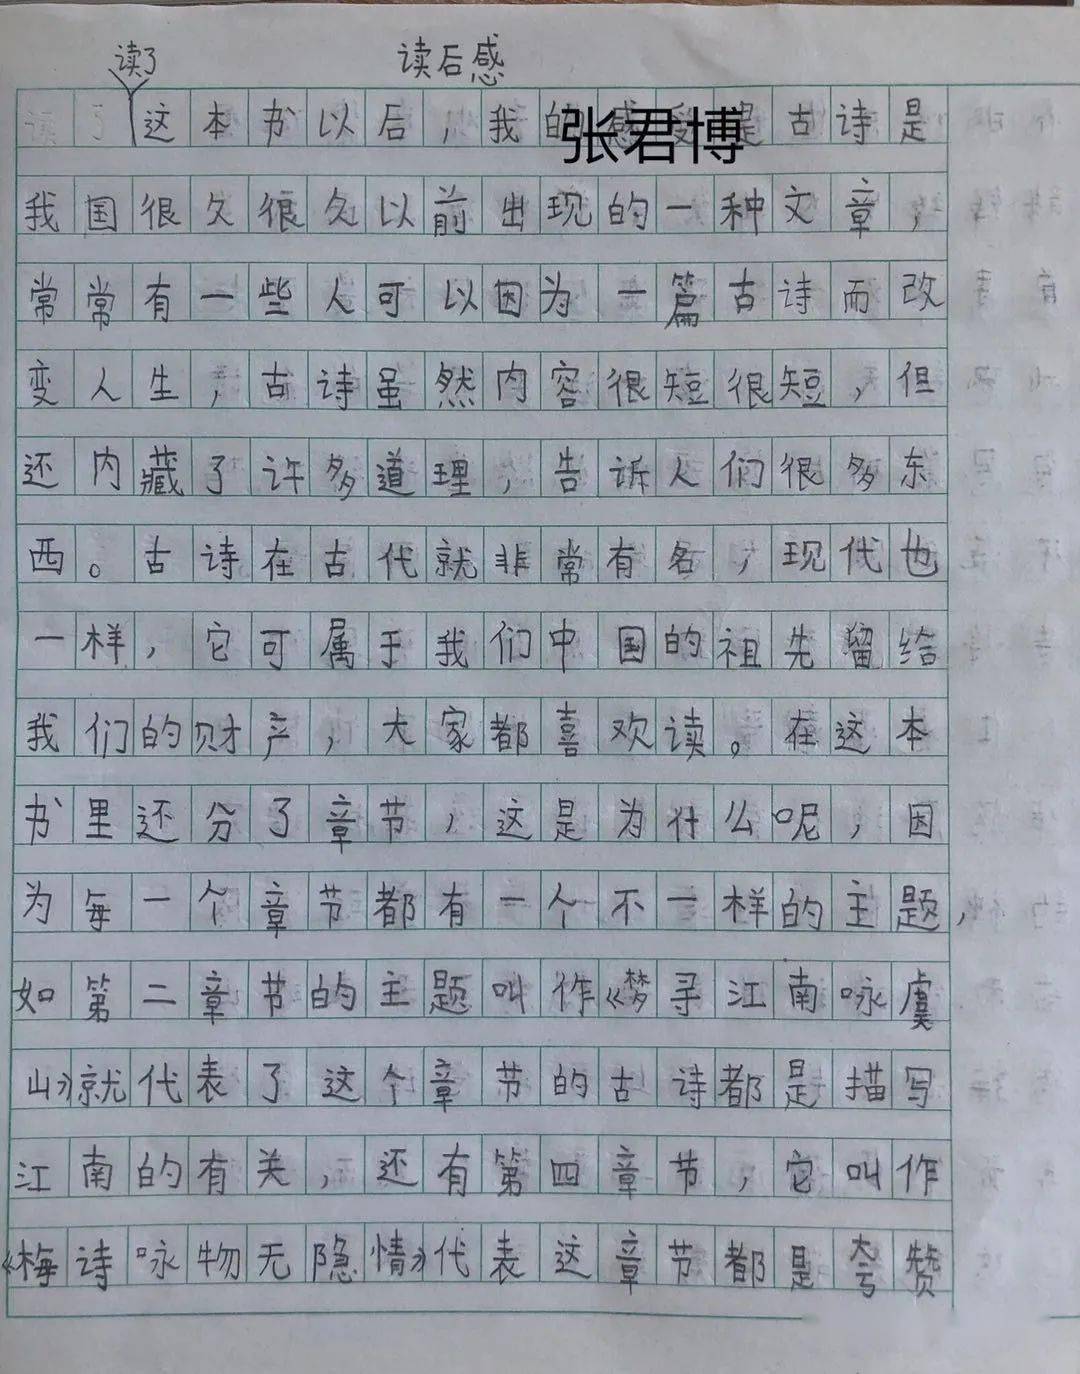 读后感
读了
这本书以后，我的感受是古诗是
张君博
我国很久很久以前出现的一种文章，
常常有一些人可以因为一篇古诗而改
变人生，古诗虽然内容很短很短，但
还内藏了许多道理，告诉人们很多东
西。古诗在古代就非常有名，现代也
一样，它可属于我们中国的祖先留给
我们的财产，大家都喜欢读。在这本
书里还分了章节，这是为什么呢，因
为每一个章节都有一个不一样的主题，
如第二章节的主题叫作《梦寻江南咏虞
山》就代表了这个章节的古诗都是描写
江南的有关，还有第四章节，它叫作
《梅诗咏物无隐情》代表这章节都是夸赞